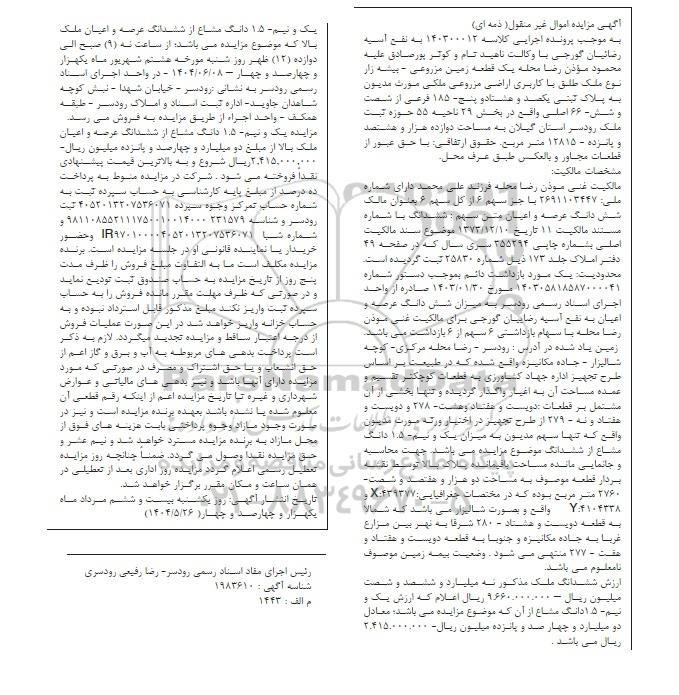 آگهی مزایده اموال غیر منقول( ذمه ای)
به موجب پرونده اجرایی کلاسه ۱۴۰۳۰۰۰۱۲ به نفع آسیه
رضائیان گورجی با وکالت ناهید تـام و کوثر پورصادق علیه
محمود مؤذن رضا محله یک قطعه زمین مزروعی - بیشه زار
نوع ملک طلق با کاربری اراضی مزروعی ملکی مورث مدیون
به پلاک ثبتی یکصد و هشتادو پنج- ۱۸۵ فرعی از شصت
و شش- ۶۶ اصلی واقع در بخش ۲۹ ناحیه ۵۵ حوزه ثبت
ملک رودسر استان گیلان به مساحت دوازده هزار و هشتصد
و پانزده - ۱۲۸۱۵ متر مربع. حقوق ارتفاقی: با حق عبور از
قطعات مجاور و بالعکس طبق عرف محل.
مشخصات مالکیت:
مالکیت غنی مـوذن رضا محله فرزند علی محمد دارای شماره
ملی: ۲۶۹۱۱۰۳۴۴۷ با جـز سـهم ۶ از کل سـهم ۶ بعنوان مالک
شش دانگ عرصه و اعیان متن سهم : ششدانگ با شماره
مستند مالکیت ۱۱ تاریخ ۱۳۷۳/۱۲/۱۰ موضوع سند مالکیت
اصلی بشماره چاپی ۳۵۵۲۹۴ سری سـال کـه در صفحه ۴۹
دفتر املاک جلد ۱۷۳ ذیل شماره ۲۵۸۳۰ ثبت گردیده است.
محدودیت: یک مـورد بازداشت دائـم بموجب دستور شماره
۱۴۰۳۰۵۸۱۸۵۸۷۰۰۰۰۴۱ مـورخ ۱۴۰۳/۰۱/۳۰ صـادره از واحـد
اجرای اسناد رسمی رودسر به میزان شش دانگ عرصه و
اعیان به نفع آسیه رضاییان گورجی بـرای مالکیت غنی موذن
رضا محلـه با سـهام بازداشتی ۶ سهم از ۶ بازداشت می باشد.
زمین یاد شده در آدرس : رودسر - رضا محله مرکزی- کوچه
شالیزار - جاده مکانیزه واقع شده که در طبیعت بر اساس
طرح تجهیز اداره جهاد کشاورزی به قطعات کوچکتر تقسیم و
عمده مساحت آن به اغیار واگذار گردیده و تنها بخشی از آن
مشتمل بر قطعات :دویست و هفتاد وهشت- ۲۷۸ و دویست و
هفتاد و نه - ۲۷۹ از طرح تجهیز در اختیار ورثه مورث مدیون
واقع کـه تنها سـهم مدیـون به میزان یک و نیم- ۱.۵ دانگ
مشاع از ششدانگ موضوع مزایده می باشد. جهت محاسبه
و جانمایی مانده مساحت باقیمانده پلاک بالا توسط نقشه
بردار قطعه موصوف به مساحت دو هزار و هفتصد و شصت-
۲۷۶۰ متر مربع بوده که در مختصات جغرافیایی:X:۴۳۹۳۷۷ و
Y:۴۱۰۴۳۳۸ واقع و بصورت شالیزار می باشد که شمالا
به قطعه دویست و هشتاد - ۲۸۰ شرقا به نهر بین مزارع
غربا به جاده مکانیزه و جنوبا به قطعه دویست و هفتاد و
هفت - ۲۷۷ منتهی می شود . وضعیت بیمه زمین موصوف
نامعلوم می باشد.
ارزش ششدانگ ملک مذکور نـه میلیارد و ششصد و شصت
میلیون ریال – ۹.۶۶۰.۰۰۰.۰۰۰ ریال اعلام که ارزش یک و
نیم- ۱.۵دانگ مشاع از آن که موضوع مزایده می باشد؛ معادل
دو میلیارد و چهار صد و پانزده میلیون ریال- ۲.۴۱۵.۰۰۰.۰۰۰
ریال می باشد .
یک و نیم- ۱.۵ دانگ مشاع از ششدانگ عرصه و اعیان ملک
بالا کـه موضوع مزایده مـی باشد؛ از ساعت نـه (۹) صبح الـی
دوازده (۱۲) ظهر روز شنبه مورخه هشتم شهریور ماه یکهزار
و چهارصـد و چهـار – ۱۴۰۴/۰۶/۰۸ - در واحد اجـرای اسـناد
رسمی رودسر به نشانی :رودسر - خیابان شهدا - نبش کوچه
شاهدان جاوید- اداره ثبت اسناد و املاک رودسر - طبقه
همکف - واحد اجراء از طریق مزایده به فروش می رسد.
مزایده یک و نیم- ۱.۵ دانگ مشاع از ششدانگ عرصه و اعیان
ملک بالا از مبلغ دو میلیارد و چهارصد و پانزده میلیون ریال-
۲.۴۱۵.۰۰۰.۰۰۰ریال شروع و به بالاترین قیمت پیشنهادی
نقداً فروخته مـی شود . شرکت در مزایده منـوط به پرداخت
ده درصد از مبلغ پایه کارشناسی به حساب سپرده ثبت به
شماره حساب تمرکز وجوه سپرده ۴۰۵۲۰۱۳۲۰۷۵۳۶۰۷۱ ثبت
رودسر و شناسه ۲۳۱۵۷۹ ۹۸۱۱۰۸۵۵۲۱۱۱۷۵۰۰۱۰۰۱۴۰۰۰ و
شماره شـبا IR۹۷۰۱۰۰۰۰۴۰۵۲۰۱۳۲۰۷۵۳۶۰۷۱ وحضـور
خریدار یا نماینده قانونی او در جلسه مزایده است. برنده
مزایده مکلف است مـا به التفاوت مبلغ فروش را ظـرف مدت
پنج روز از تاریخ مزایده به حساب صندوق ثبت تودیع نماید
و در صورتی که ظرف مهلت مقرر مانده فروش را به حساب
سپرده ثبت واریـز نکنـد مبلغ مذکور قابل استرداد نبـوده و به
حساب خزانه واریز خواهد شد در این صورت عملیات فروش
از درجه اعتبـار ساقط و مزایده تجدید میگردد. لازم به ذکـر
است پرداخت بدهی های مربوطه به آب و برق و گاز اعم از
حق انشعاب و یا حق اشتراک و مصرف در صورتی که مورد
مزایده دارای آنها باشد و نیز بدهی های مالیاتی و عوارض
شهرداری و غیره تـا تاریخ مزایده اعم از اینکه رقـم قطعی آن
معلوم شده یا نشده باشد بعهده برنده مزایده است و نیز در
صورت وجـود مـازاد وجـوه پرداختی بابت هزینه های فـوق از
محل مـازاد به برنـده مزایده مسترد خواهد شـد و نیم عشر و
حق مزایده نقداً وصول می گردد. ضمناً چنانچه روز مزایده
تعطیل رسمی اعلام گردد مزایده روز اداری بعد از تعطیلی در
همان ساعت و مکان مقرر برگزار خواهد شد.
تاریخ انتشار آگهی: روز یکشنبه بیست و ششم مرداد ماه
یکهزار و چهارصد و چهار( ۱۴۰۴/۵/۲۶)
رئیس اجرای مفاد اسناد رسمی رودسر- رضا رفیعی رودسری
شناسه آگهی : ۱۹۸۳۶۱۰
م الف : ۱۴۴۳